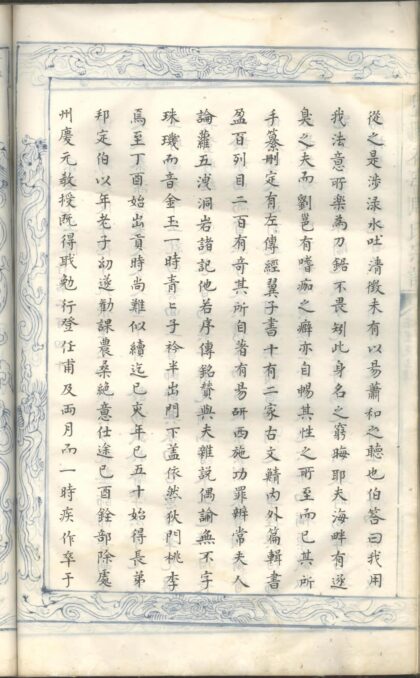 從之是涉渌水吐清徵未有以易蕭和之聽也伯答曰我用
我法意所樂為刀鋸不畏矧此身名之窮晦耶夫海畔有逐
臭之夫而劉邕有嗜痂之癖亦自暢其性之所至而已其所
手纂刪定有左傳經翼子書十有二家古文鯖內外篇輯書
盈百列目二百有奇其所自著有易研西施功罪辨常夫人
論蘿五洩洞岩諸記他若序傳銘贊與夫雜說偶論無不字
珠璣而音金玉一時青〻子衿半出門下蓋依然狄門桃李
焉至丁酉始出貢時尚難似續迄已亥年已五十始得長弟
邦定伯以年老子幼遂勸課農桑絕意仕途已酉銓部除處
州慶元教授既得戢勉行登任甫及兩月而一時疾作卒于